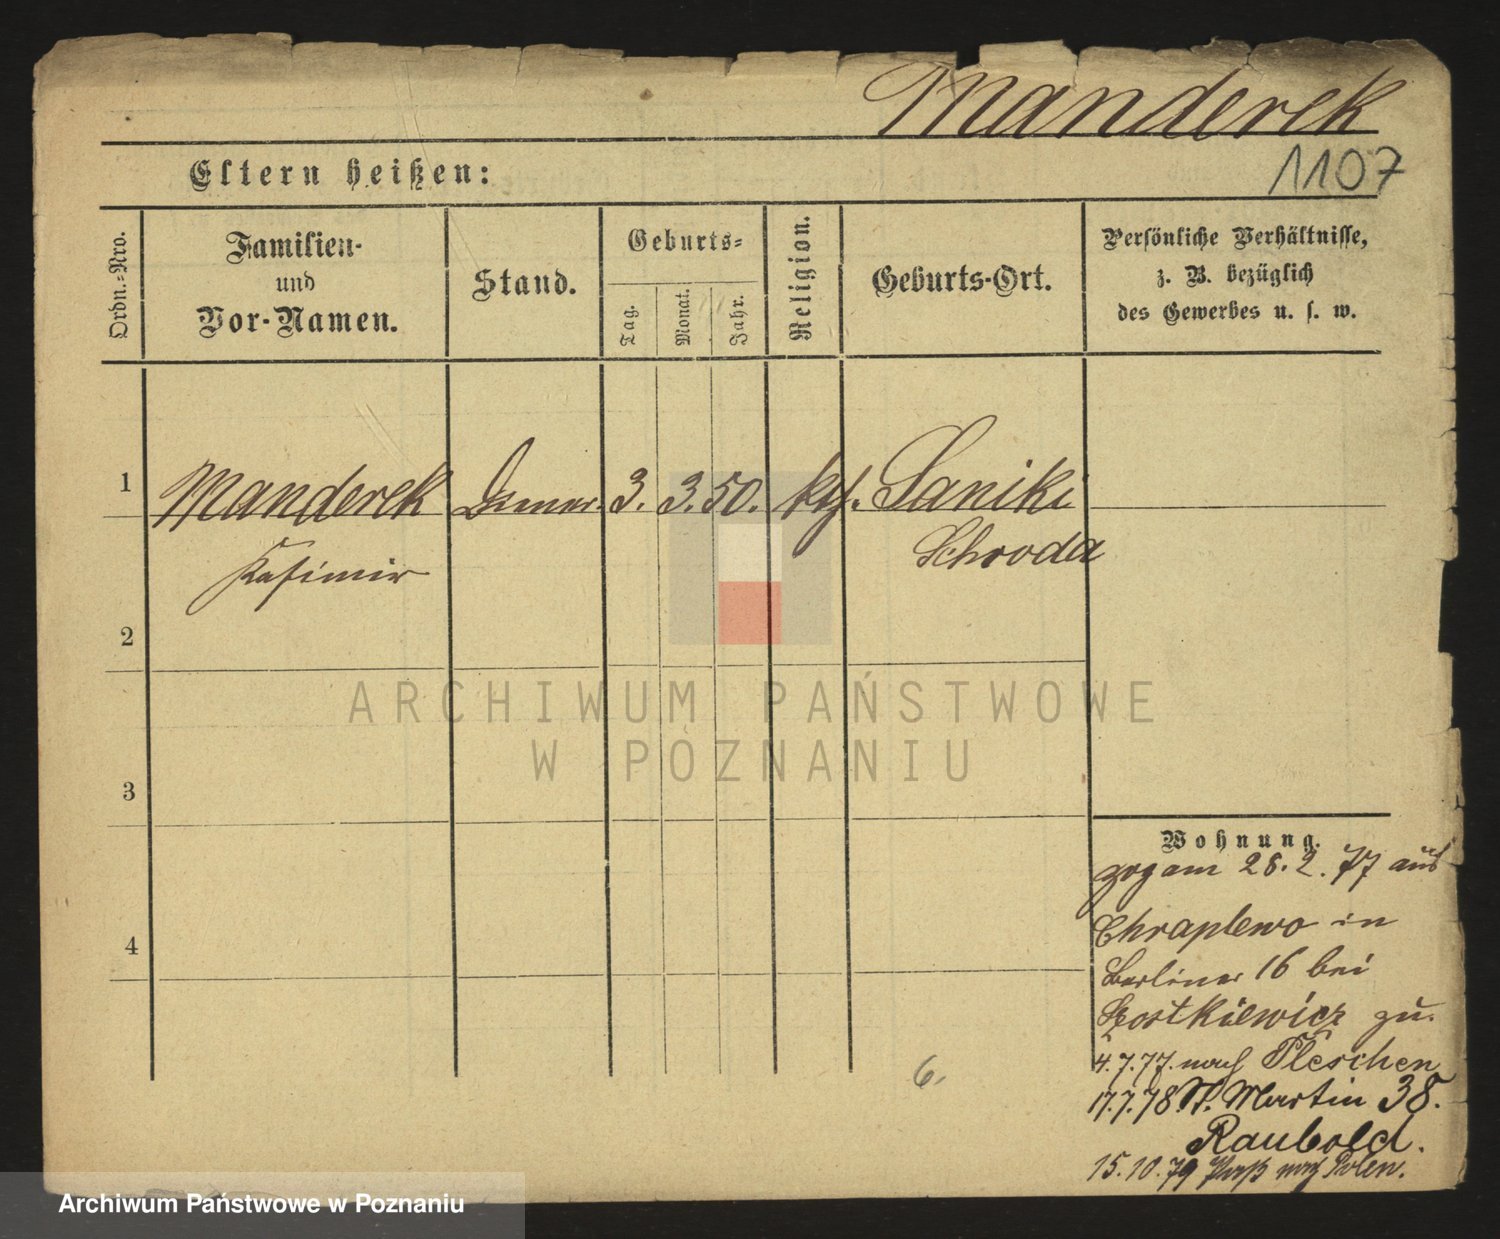 Manderek
1107
Eltern heißen:
Ordn.-Nro.
Familien-
und
Vor-Namen.
Stand.
Geburts-
Tag.
Monat.
Jahr.
Religion.
Geburts-Ort.
Persönliche Verhältnisse,
z. B. bezüglich
des Gewerbes u. s. w.
1
Manderek
3. 3. 50. kth. Saniki
Kasimir
Schroda
2
ARCHIWUM PAŃSTWOWE
W POZNANIU
3
Wohnung.
zog am 28. 2. 77 aus
Chraplewo in
4
Berliner 16 bei
zu.
4. 7. 77. nach Pleschen
17. 7. 78. St. Martin 38.
Raubold.
15. 10. 79 Paß nach Polen.
6.
Archiwum Państwowe w Poznaniu